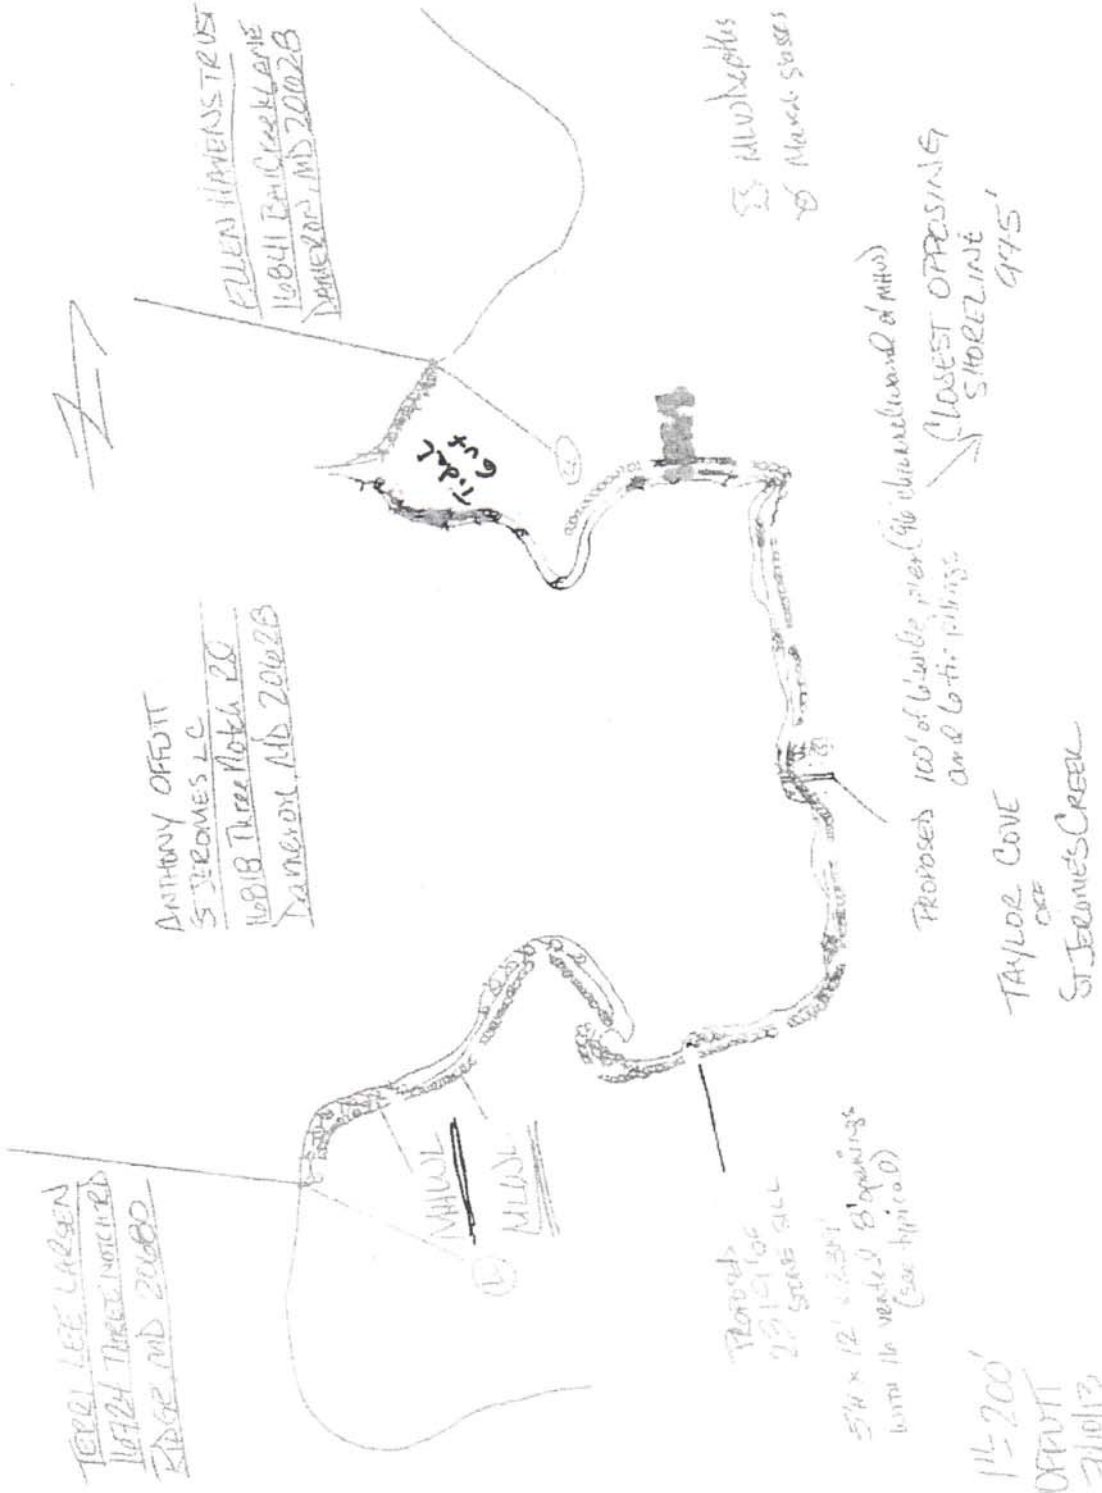 TERRI LEE LARSEN
16924 THREE NOTCH RD
RIDGE, MD 20680
ANTHONY OFFUTT
ST JEROMES LC
16818 Three Notch RD
Dameron, MD 20628
ELLEN HAVENS TRUST
16841 Bay Creek LANE
DAMERON, MD 20628
Tidal
Gut
MHWL
MLWL
MLW Depths
Marsh grasses
PROPOSED
2319' OF
STONE SILL
with 16 vented 8' openings
(see typical)
PROPOSED 100' of 6' wide pier (96' channelward of MHW)
and 6 tie pilings
CLOSEST OPPOSING
SHORELINE
TAYLOR COVE
OFF
ST JEROMES CREEK
1"=200'
OFFUTT